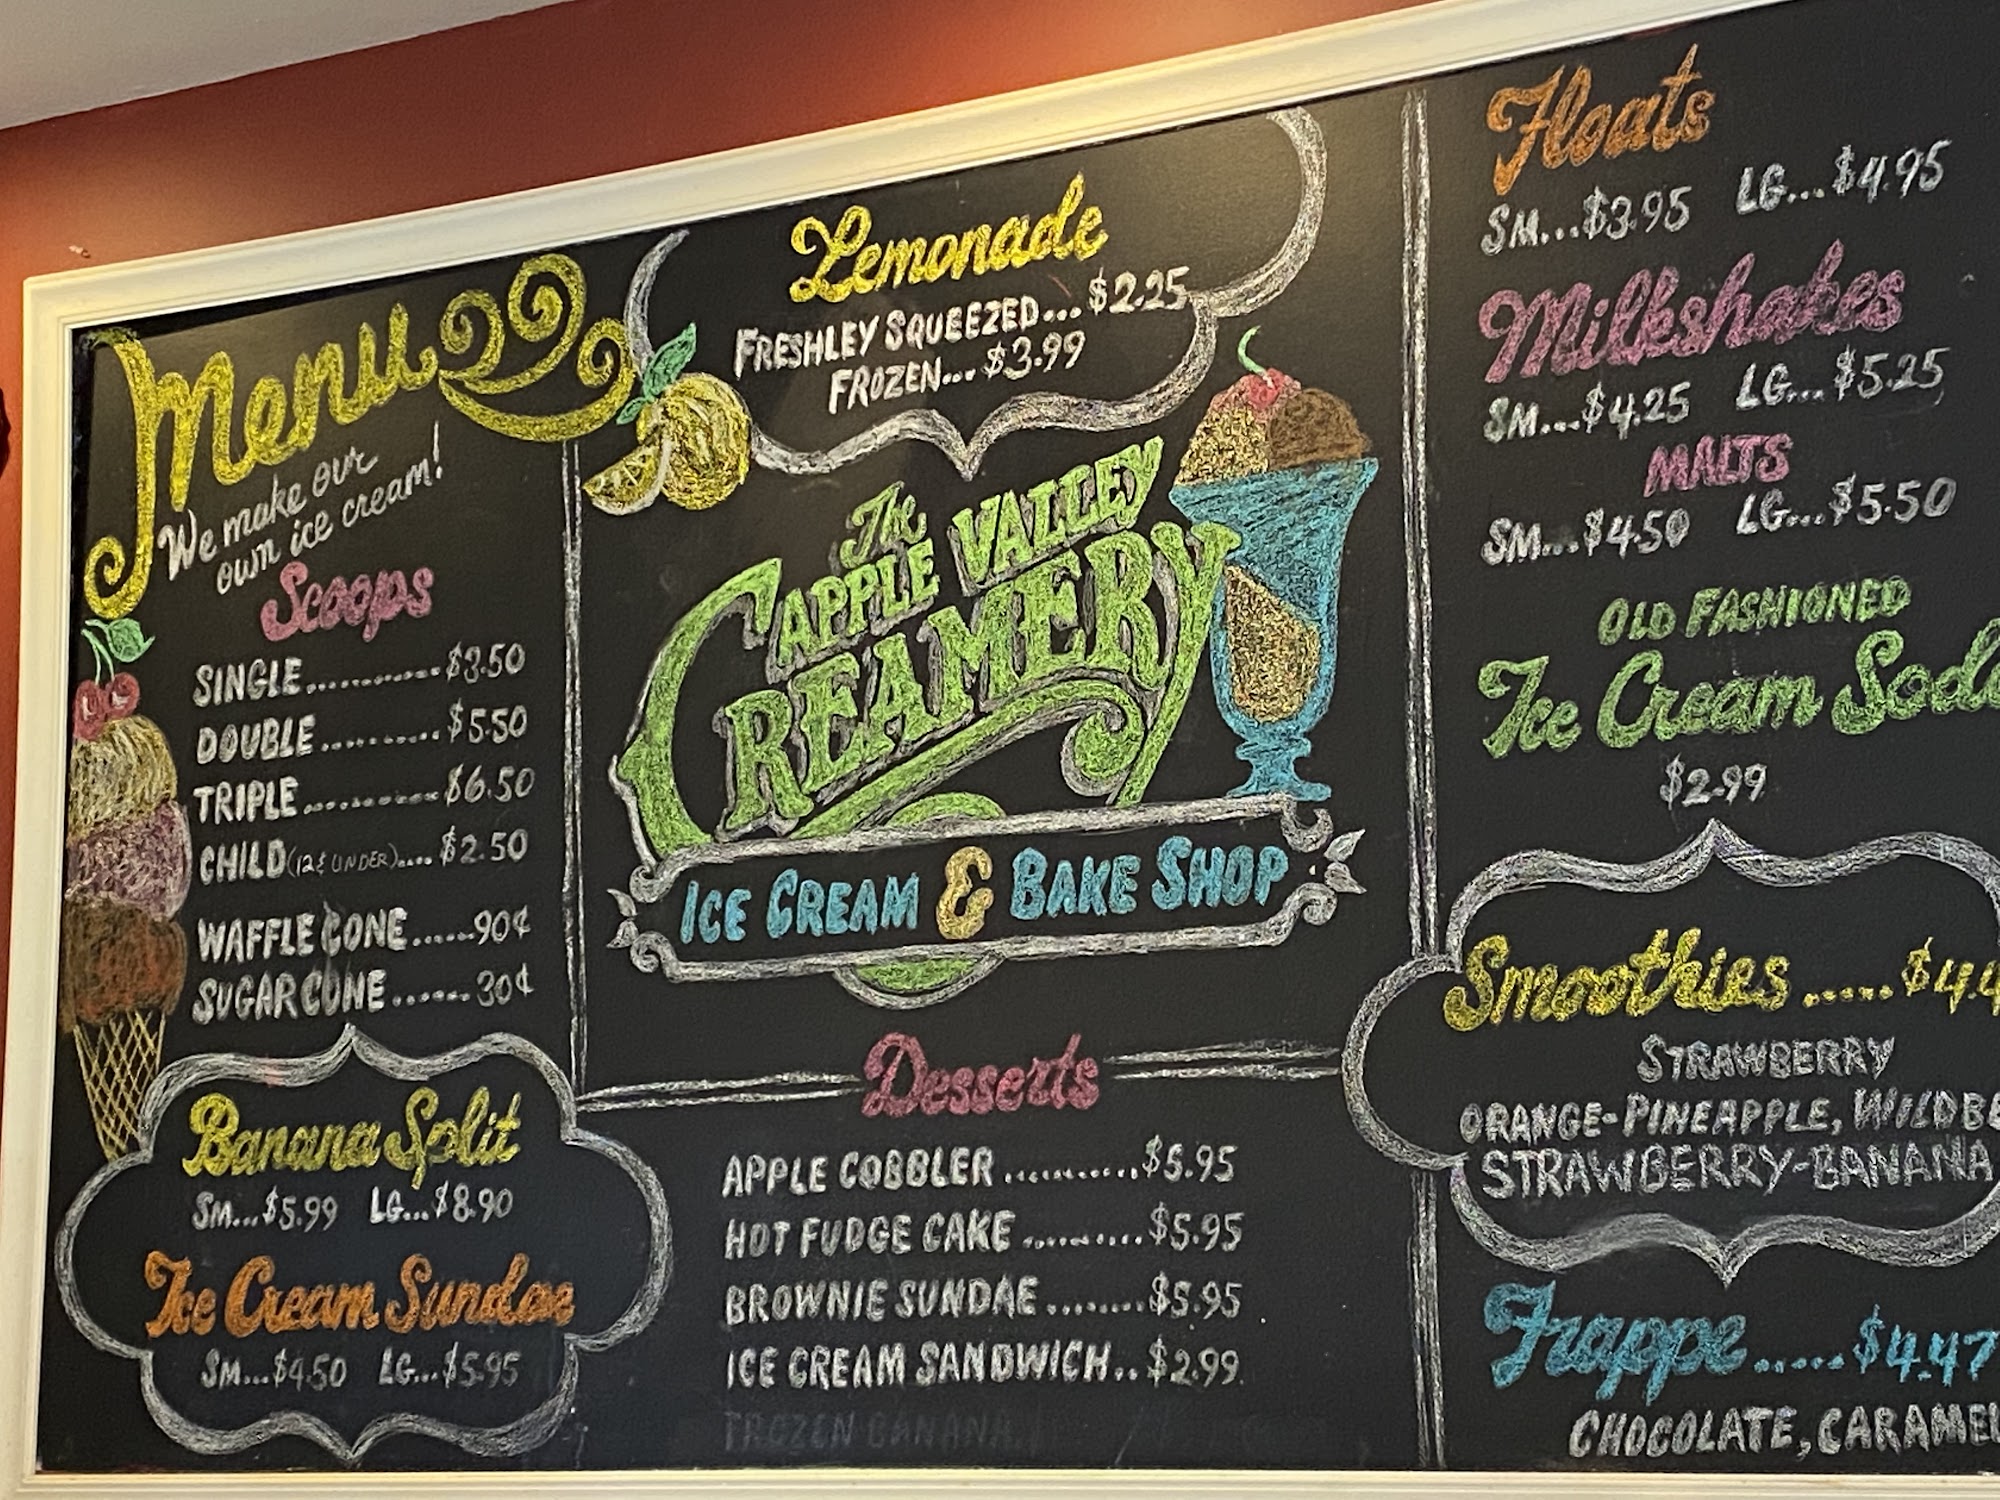 Menu
We make our
own ice cream!
Scoops
SINGLE............$3.50
DOUBLE...........$5.50
TRIPLE............$6.50
CHILD (12 & UNDER)....$2.50
WAFFLE CONE......90¢
SUGAR CONE.......30¢
Banana Split
SM...$5.99 LG...$8.90
Ice Cream Sundae
SM...$4.50 LG...$5.95
Lemonade
FRESHLEY SQUEEZED...$2.25
FROZEN...$3.99
The
APPLE VALLEY
CREAMERY
ICE CREAM & BAKE SHOP
Desserts
APPLE COBBLER...........$5.95
HOT FUDGE CAKE..........$5.95
BROWNIE SUNDAE........$5.95
ICE CREAM SANDWICH..$2.99
FROZEN BANANA
Floats
SM...$3.95 LG...$4.95
Milkshakes
SM...$4.25 LG...$5.25
MALTS
SM...$4.50 LG...$5.50
OLD FASHIONED
Ice Cream Soda
$2.99
Smoothies.....$4.4
STRAWBERRY
ORANGE-PINEAPPLE, WILDBE
STRAWBERRY-BANANA
Frappe.....$4.47
CHOCOLATE, CARAMEL